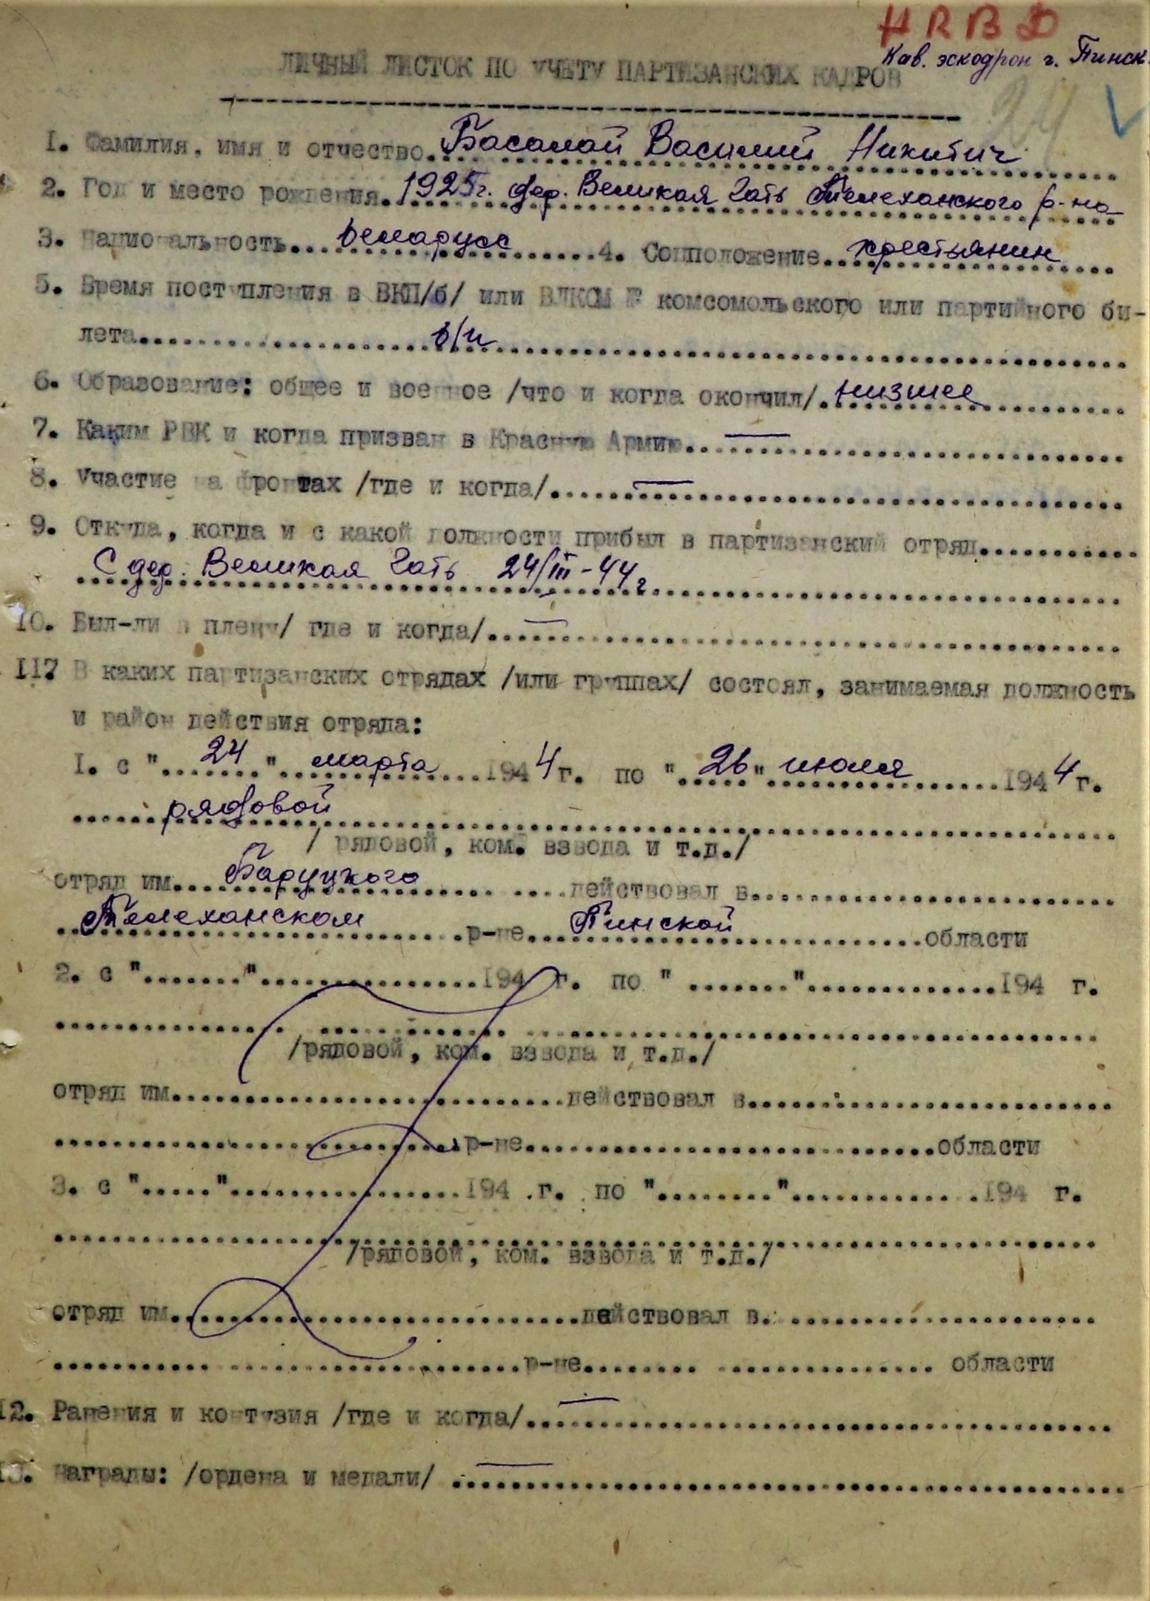 НКВД
Кав. эскодрон г. Пинск.
ЛИЧНЫЙ ЛИСТОК ПО УЧЕТУ ПАРТИЗАНСКИХ КАДРОВ
24
1. Фамилия, имя и отчество. Басалай Василий Никитич
2. Год и место рождения. 1925г. дер. Великая Гать Телеханского р-на
3. Национальность... беларусс ......4. Соцположение. крестьянин
5. Время поступления в ВКП/б/ или ВЛКСМ № комсомольского или партийного би-
лета........ б/п ........
6. Образование: общее и военное /что и когда окончил/. низшее
7. Каким РВК и когда призван в Красную Армию.. —
8. Участие на фронтах /где и когда/..... —
9. Откуда, когда и с какой должности прибыл в партизанский отряд...........
С дер. Великая Гать 24/III-44г
10. Был-ли в плену/ где и когда/.. —
II7 В каких партизанских отрядах /или группах/ состоял, занимаемая должность
и район действия отряда:
I. с "..24.." марта ....1944г. по "..26.." июля ......1944г.
...... рядовой ......
/ рядовой, ком. взвода и т.д./
отряд им... Баруцкого ...... ....действовал в......................
.. Телеханском ......р-не... Пинской ............области
2. с "......."...............194 г. по " ......."..............194 г.
/рядовой, ком. взвода и т.д./
отряд им............................действовал в........................
............................р-не............................области
3. с "....."................194 .г. по "........"............ .194 г.
/рядовой, ком. взвода и т.д./
отряд им.............................действовал в. .....................
............ ....................р-не........ .............. области
12. Ранения и контузия /где и когда/.. —
13. Награды: /ордена и медали/ .. —